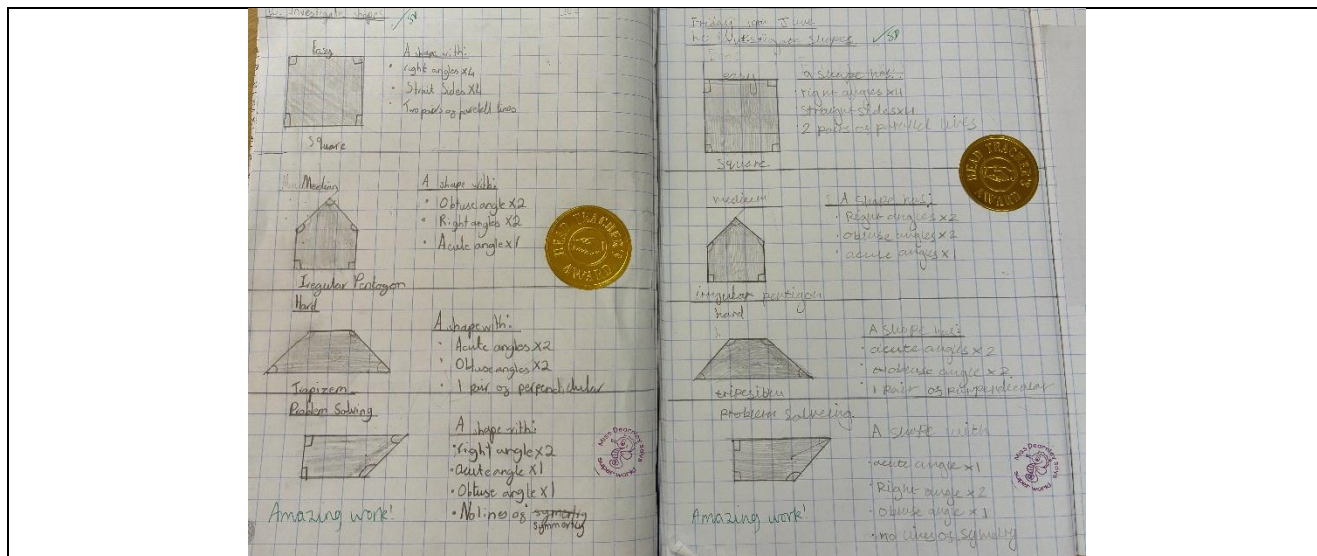 LC: Investigate shapes
Easy
A shape with:
• right angles x4
• Strait Sides x4
• Two pairs of parelell lines
Square
Medium
A shape with:
• Obtuse angle x2
• Right angles x2
• Acute angle x1
Iregular Pentagon
Hard
A shape with:
• Acute angles x2
• Obtuse angles x2
• 1 pair of perpendicular
Trapizem
Problem Solving
A shape with:
• right angle x2
• acute angle x1
• Obtuse angle x1
• No lines of symmortly
HEAD TEACHER'S AWARD
Miss Dearnley says
super work!
Amazing work!
Friday June
LC: Investigate shapes
easy
a shape has:
right angles x4
straight sides x4
2 pairs of parallel lines
Square
HEAD TEACHER'S AWARD
medium
A shape has:
• Right angles x2
• obtuse angles x2
• acute angles x1
irregular pentigon
hard
A shape has:
• acute angles x2
• obtuse angle x2
• 1 Pair of perpendicular
problem solveing
A shape with
• acute angle x1
• Right angle x2
• obtuse angle x1
• no lines of symetry
Miss Dearnley says
super work!
Amazing work!